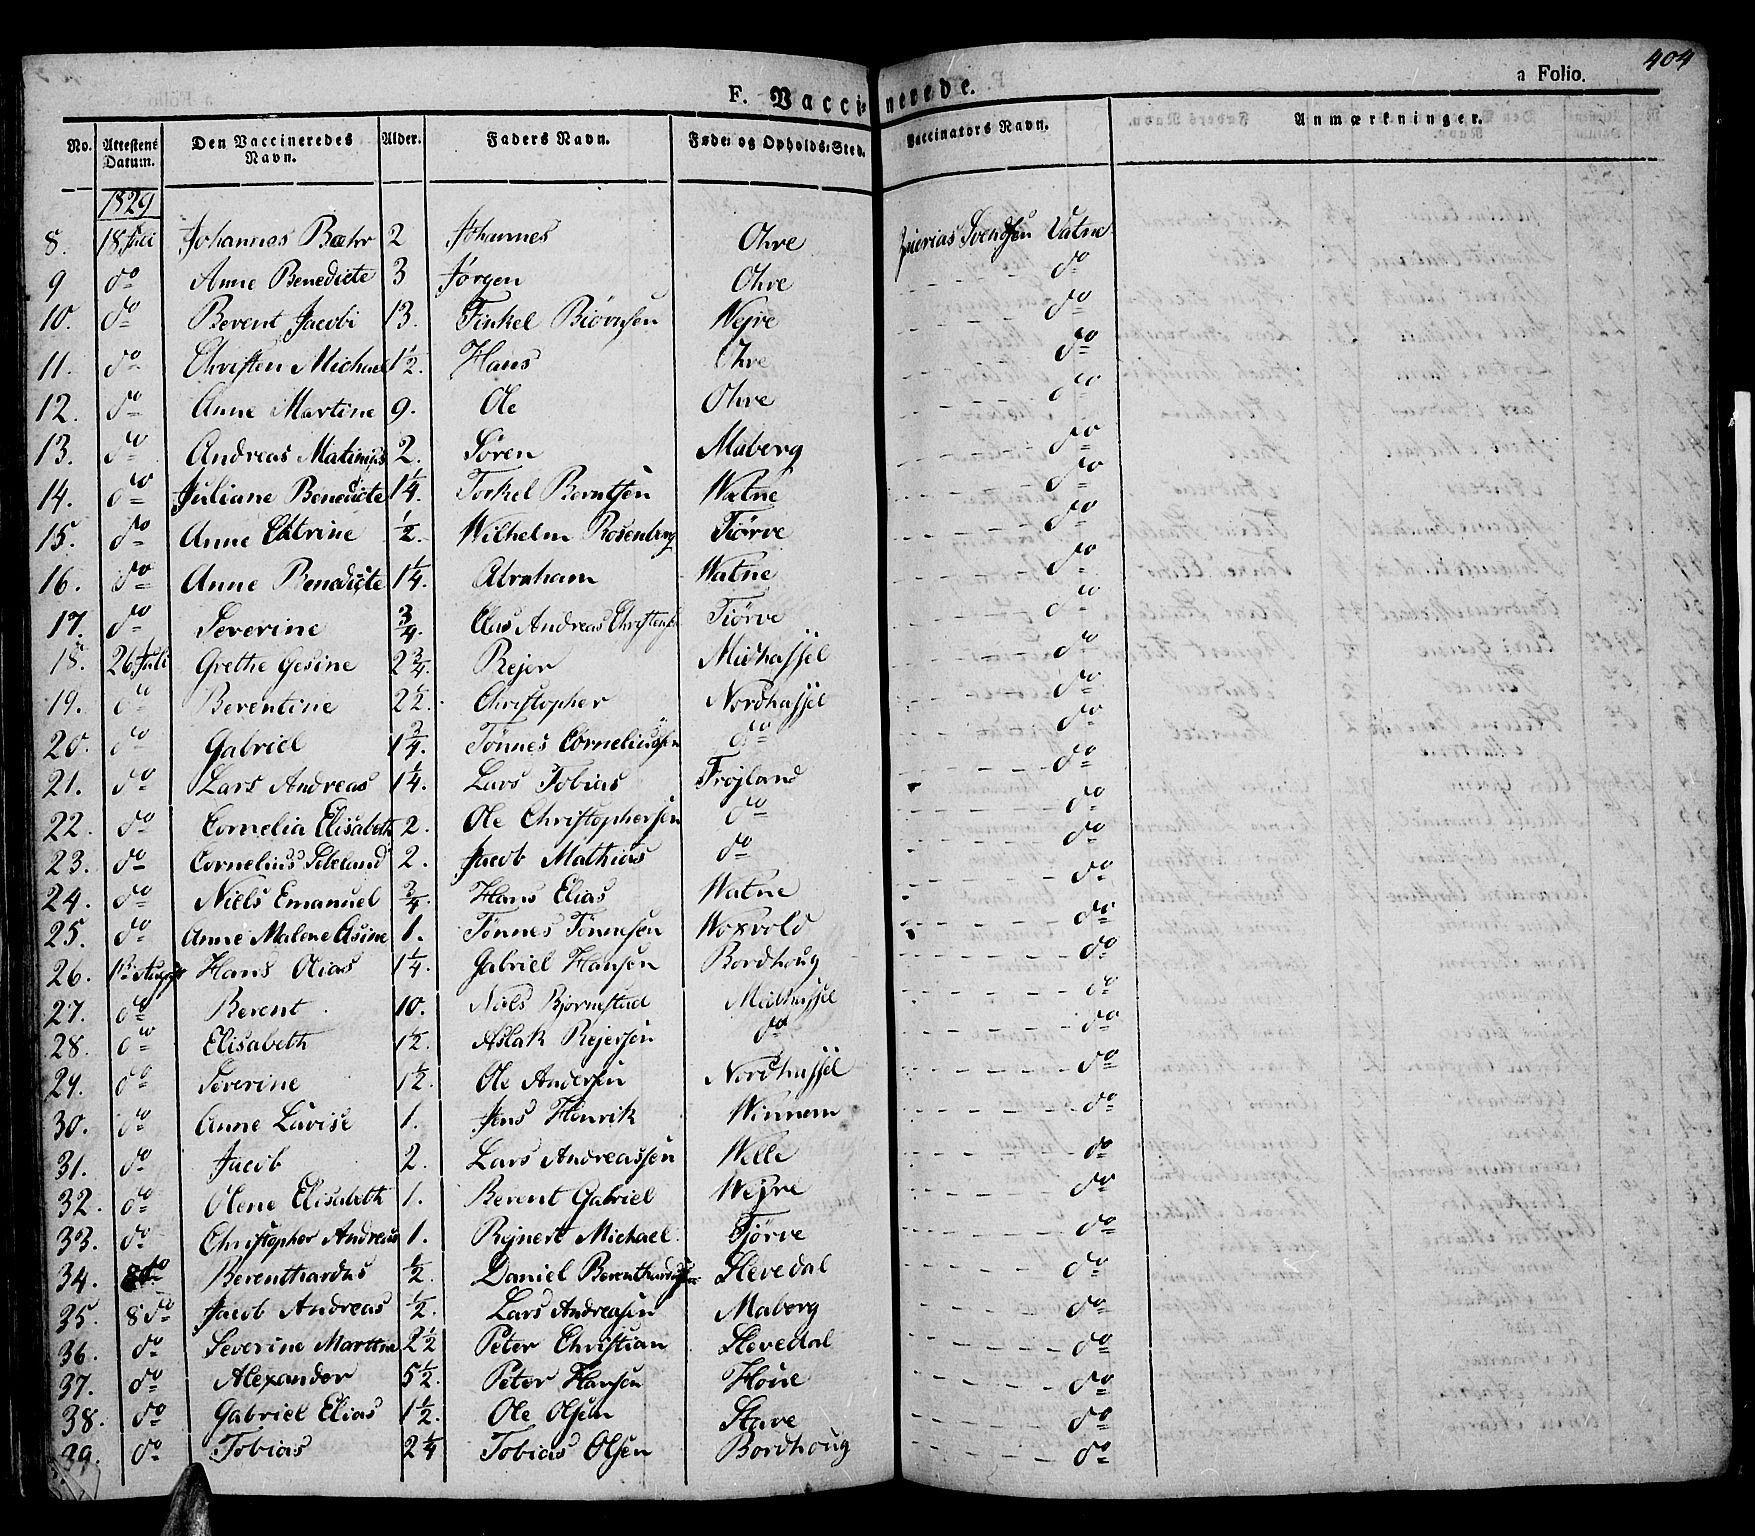 404
F. Vaccinerede. a Folio.
No. Attestens Datum. Den Vaccineredes Navn. Alder. Faders Navn. Føde- og Opholds-Sted. Vaccinators Navn. Anmærkninger.
1829
8. 18 Juli Johannes Bæhr 2 Johannes Ohre Svendsen Vatne
9 do Anne Benedicte 3 Jørgen Ohre - - - do
10. do Berent Jacobi 13. Tinkel Biørnsen Wejre - - - do
11. do Christen Michael 1½. Hans Ohre - - - do
12. do Anne Martine 9. Ole Ohre - - - do
13. do Andreas Matinius 2. Sören Maberg - - - do
14. do Juliane Benedicte 1¼. Torkel Berntsen Watne - - - do
15. do Anne Catrine ½. Wilhelm Rosenberg Tiörve - - - do
16. do Anne Benedicte 1¼. Abraham Watne - - - do
17. do Severine ¾. Claus Andreas Tiörve - - - do
18. 26 Juli Grethe Gesine 2¾. Rejer Midhassel - - - do
19. do Berentine 2½. Christopher Nordhassel - - - do
20. do Gabriel 1¾. Tönnes Corneliussen do - - - do
21. do Lars Andreas 1¼. Lars Tobias Frojland - - - do
22. do Cornelia Elisabeth 2. Ole Christophersen do - - - do
23. do Cornelius Sibeland 2. Jacob Mathias do - - - do
24. do Niels Emanuel ¾. Hans Elias Watne - - - do
25. do Anne Malene Asine 1. Tönnes Tönnesen Woxvold - - - do
26. 1 August Hans Olias 1¼. Gabriel Hansen Bordhoug - - - do
27. do Berent 10. Niels Bjornestad Midhassel - - - do
28. do Elisabeth 1½. Aslak Rejersen do - - - do
29. do Severine 1½. Ole Andersen Nordhassel - - - do
30. do Anne Lavise 1. Jens Henrik Winnem - - - do
31. do Jacob 2. Lars Andreassen Welle - - - do
32. do Olene Elisabeth 1. Berent Gabriel Wejre - - - do
33. do Christopher Andreas 1. Rejnert Michael Tjörve - - - do
34. do Berenthardus ½. Daniel Slevedal - - - do
35. 8 do Jacob Andreas ½. Lars Andreasen Maberg - - - do
36. do Severine Martine 2½ Peter Christian Slevedal - - - do
37. do Alexander 5½. Peter Hansen Höue - - - do
38. do Gabriel Elias 1½. Ole Olsen Stave - - - do
39. do Tobias 2¼ Tobias Olsen Bordhoug - - - do